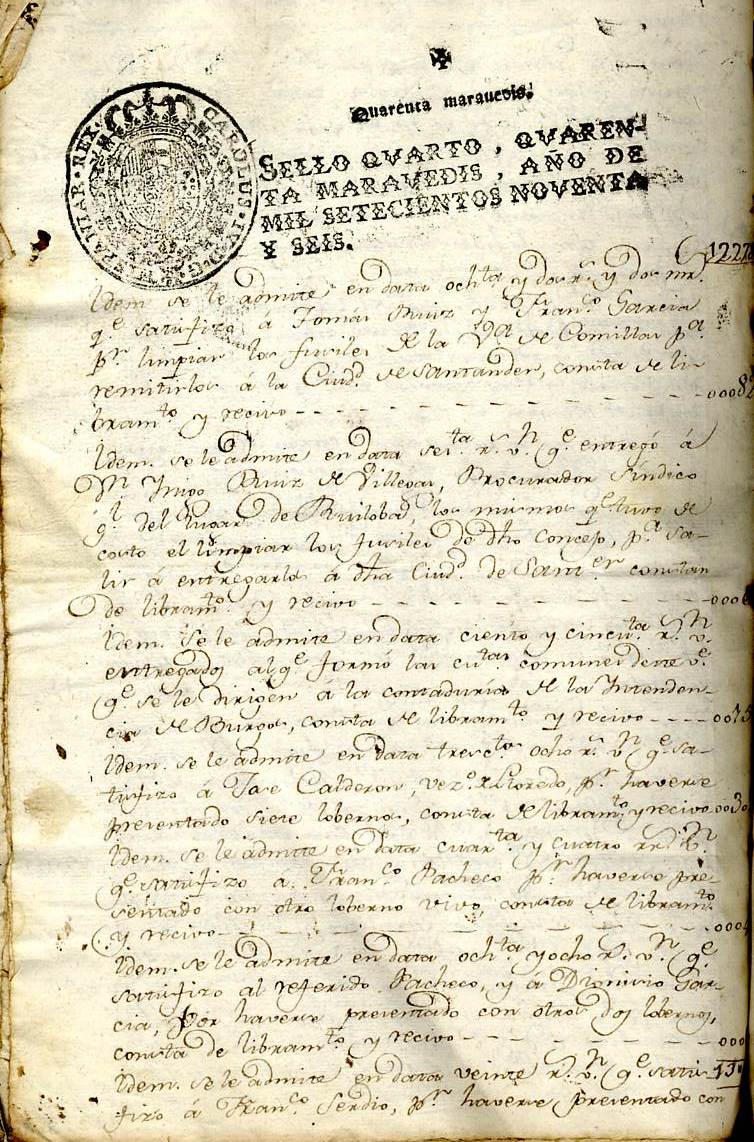 Quarenta maravedis.
CAROLUS·IV·D·G·HISPANIAR·REX·
SELLO QVARTO, QVAREN-
TA MARAVEDIS, AÑO DE
MIL SETECIENTOS NOVENTA
Y SEIS.
Idem. se le admite en data och.ta y dos r.s y dos mr.s
q.e satisfizo á Tomas Ruiz y Fran.co Garcia
p.r limpiar los fusiles de la V.a de Comillas p.a
remitirlos á la Ciud.d de Santander, consta de li-
bram.to y recivo - - - - - - - - 00082
Idem. se le admite en data ses.ta r.s v.n q.e entregó á
Iñigo Ruiz de Villegas, Procurador Sindico
g.l del lugar de Ruiloba, los mismos q.e tuvo de
costo el limpiar los fusiles de dho Concejo, p.a sa-
lir á entregarlos á dha Ciud.d de Sant.er constan
de libram.to y recivo - - - - - - - 0006
Idem. se le admite en data ciento y cincu.ta r.s v.n
entregados al q.e formó las cu.tas comunes de este v.e
q.e se le dirigen á la contaduria de la Intenden-
cia de Burgos, consta de libram.to y recivo - - - - 0015
Idem. se le admite en data tresc.tos ocho r.s v.n q.e sa-
tisfizo á Jose Calderon, vez.o de Lloredo, p.r haverse
presentado siete lobernos, consta de libram.to y recivo 0030
Idem. se le admite en data cuar.ta y cuatro r.s v.n
q.e satisfizo a Fran.co Pacheco p.r haverse pre-
sentado con otro loberno vivo, consta de libram.to
y recivo - - - - - - - 0004
Idem. se le admite en data och.ta y ocho r.s v.n q.e
satisfizo al referido Pacheco, y á Dionisio Gar-
cia, por haverse presentado con otros dos lobernos,
consta de libram.to y recivo - - - - - - 000
Idem. se le admite en data veinte r.s v.n q.e satis-
fizo á Fran.co Serdio, p.r haverse presentado con